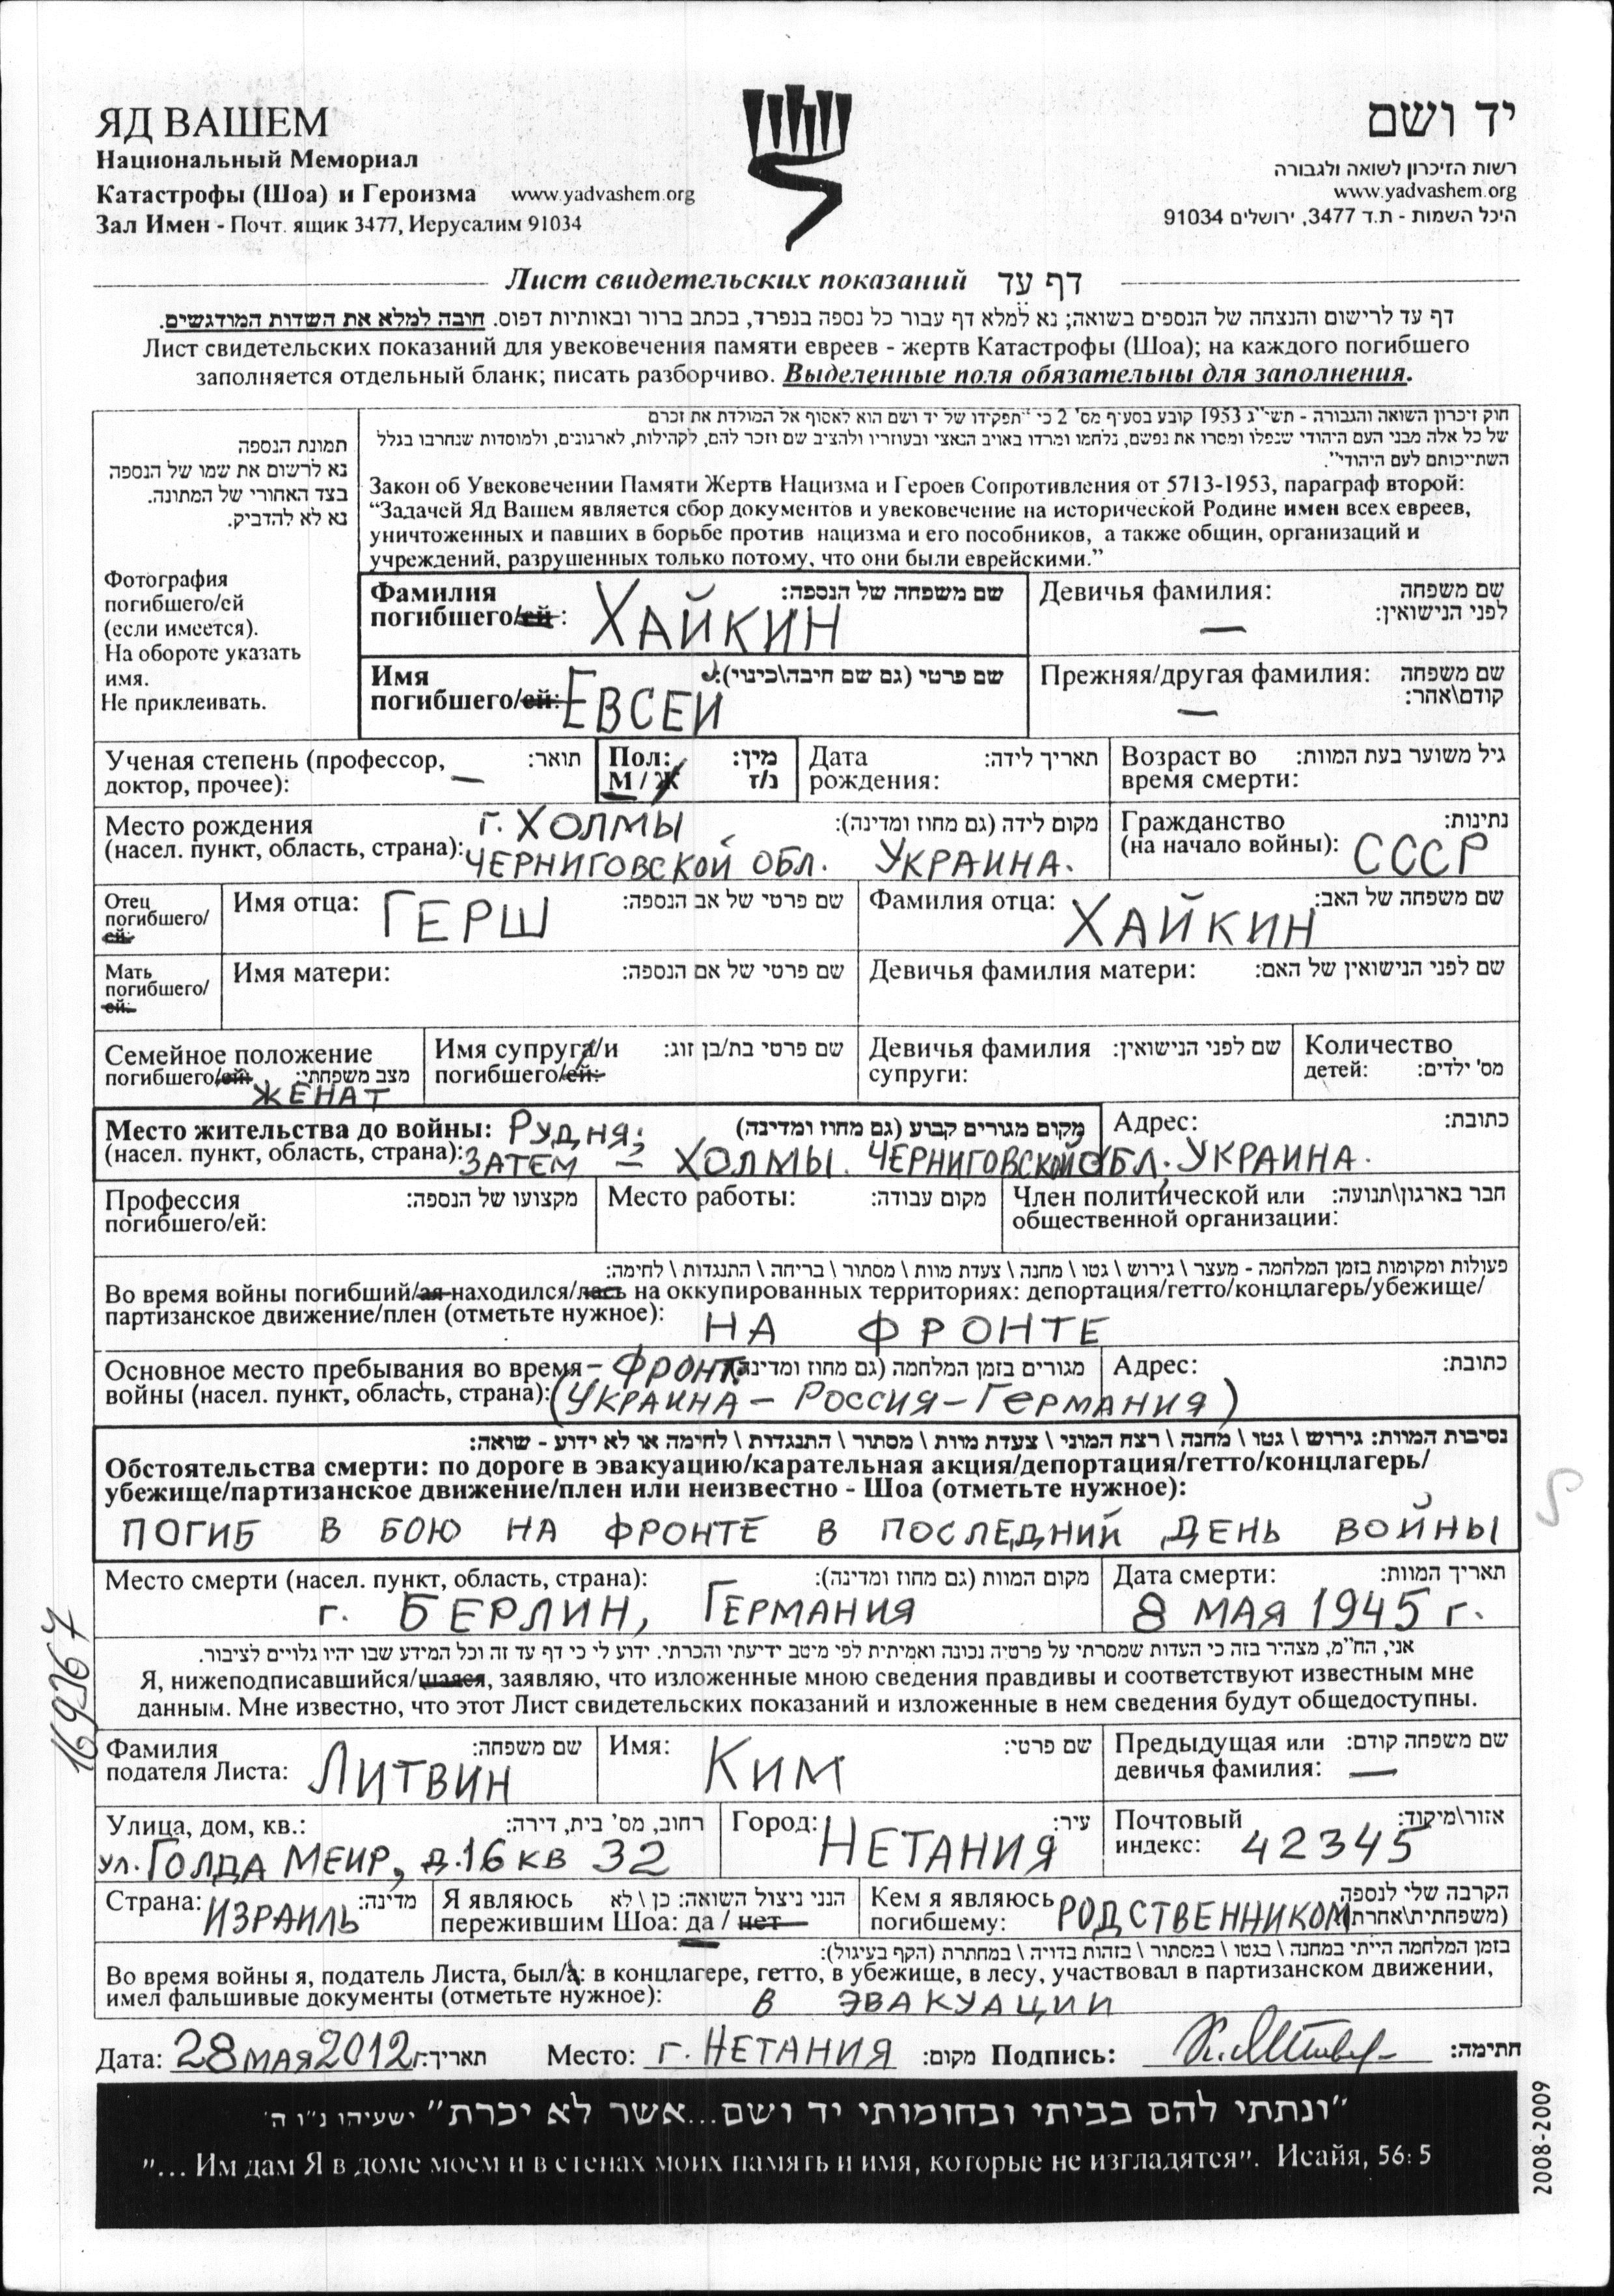 ЯД ВАШЕМ
Национальный Мемориал
Катастрофы (Шоа) и Героизма www.yadvashem.org
Зал Имен - Почт. ящик 3477, Иерусалим 91034
יד ושם
רשות הזיכרון לשואה ולגבורה
www.yadvashem.org
היכל השמות - ת.ד 3477, ירושלים 91034
Лист свидетельских показаний דף עד
דף עד לרישום והנצחה של הנספים בשואה; נא למלא דף עבור כל נספה בנפרד, בכתב ברור ובאותיות דפוס. חובה למלא את השדות המודגשים.
Лист свидетельских показаний для увековечения памяти евреев - жертв Катастрофы (Шоа); на каждого погибшего
заполняется отдельный бланк; писать разборчиво. Выделенные поля обязательны для заполнения.
תמונת הנספה
נא לרשום את שמו של הנספה
בצד האחורי של התמונה.
נא לא להדביק.
Фотография
погибшего/ей
(если имеется).
На обороте указать
имя.
Не приклеивать.
חוק זיכרון השואה והגבורה - תשי"ג 1953 קובע בסעיף מס' 2 כי "תפקידו של יד ושם הוא לאסוף אל המולדת את זכרם
של כל אלה מבני העם היהודי שנפלו ומסרו את נפשם, נלחמו ומרדו באויב הנאצי ובעוזריו ולהציב שם וזכר להם, לקהילות, לארגונים, ולמוסדות שנחרבו בגלל
השתייכותם לעם היהודי".
Закон об Увековечении Памяти Жертв Нацизма и Героев Сопротивления от 5713-1953, параграф второй:
“Задачей Яд Вашем является сбор документов и увековечение на исторической Родине имен всех евреев,
уничтоженных и павших в борьбе против нацизма и его пособников, а также общин, организаций и
учреждений, разрушенных только потому, что они были еврейскими.”
Фамилия שם משפחה של הנספה:
погибшего/ей: ХАЙКИН
Девичья фамилия: שם משפחה
לפני הנישואין:
—
Имя שם פרטי (גם שם חיבה\כינוי):
погибшего/ей: ЕВСЕЙ
Прежняя/другая фамилия: שם משפחה
קודם\אחר:
—
Ученая степень (профессор, תואר:
доктор, прочее): —
Пол: מין:
М / Ж נ/ז
Дата תאריך לידה:
рождения:
Возраст во גיל משוער בעת המוות:
время смерти:
Место рождения г. ХОЛМЫ מקום לידה (גם מחוז ומדינה):
(насел. пункт, область, страна): ЧЕРНИГОВСКОЙ ОБЛ. УКРАИНА.
Гражданство נתינות:
(на начало войны): СССР
Отец
погибшего/
ей:
Имя отца: ГЕРШ שם פרטי של אב הנספה:
Фамилия отца: ХАЙКИН שם משפחה של האב:
Мать
погибшего/
ей:
Имя матери: שם פרטי של אם הנספה:
Девичья фамилия матери: שם לפני הנישואין של האם:
Семейное положение
погибшего/ей: מצב משפחתי:
ЖЕНАТ
Имя супруга/и שם פרטי בת/בן זוג:
погибшего/ей:
Девичья фамилия שם לפני הנישואין:
супруги:
Количество
детей: מס' ילדים:
Место жительства до войны: РУДНЯ; מקום מגורים קבוע (גם מחוז ומדינה) Адрес: כתובת:
(насел. пункт, область, страна): ЗАТЕМ — ХОЛМЫ. ЧЕРНИГОВСКОЙ ОБЛ. УКРАИНА.
Профессия מקצועו של הנספה:
погибшего/ей:
Место работы: מקום עבודה:
Член политической или חבר בארגון\תנועה:
общественной организации:
פעולות ומקומות בזמן המלחמה - מעצר \ גירוש \ גטו \ מחנה \ צעדת מוות \ מסתור \ בריחה \ התנגדות \ לחימה:
Во время войны погибший/ая находился/лась на оккупированных территориях: депортация/гетто/концлагерь/убежище/
партизанское движение/плен (отметьте нужное): НА ФРОНТЕ
Основное место пребывания во время – ФРОНТ מגורים בזמן המלחמה (גם מחוז ומדינה) Адрес: כתובת:
войны (насел. пункт, область, страна): (УКРАИНА – РОССИЯ – ГЕРМАНИЯ)
נסיבות המוות: גירוש \ גטו \ מחנה \ רצח המוני \ צעדת מוות \ מסתור \ התנגדות \ לחימה או לא ידוע - שואה:
Обстоятельства смерти: по дороге в эвакуацию/карательная акция/депортация/гетто/концлагерь/
убежище/партизанское движение/плен или неизвестно - Шоа (отметьте нужное):
ПОГИБ В БОЮ НА ФРОНТЕ В ПОСЛЕДНИЙ ДЕНЬ ВОЙНЫ
Место смерти (насел. пункт, область, страна): מקום המוות (גם מחוז ומדינה):
г. БЕРЛИН, ГЕРМАНИЯ
Дата смерти: תאריך המוות:
8 МАЯ 1945 г.
אני, הח"מ, מצהיר בזה כי העדות שמסרתי על פרטיה נכונה ואמיתית לפי מיטב ידיעתי והכרתי. ידוע לי כי דף עד זה וכל המידע שבו יהיו גלויים לציבור.
Я, нижеподписавшийся/шаяся, заявляю, что изложенные мною сведения правдивы и соответствуют известным мне
данным. Мне известно, что этот Лист свидетельских показаний и изложенные в нем сведения будут общедоступны.
169367
Фамилия שם משפחה:
подателя Листа: ЛИТВИН
Имя: КИМ שם פרטי:
Предыдущая или שם משפחה קודם:
девичья фамилия: —
Улица, дом, кв.: רחוב, מס' בית, דירה:
ул. ГОЛДА МЕИР, д.16 кв 32
Город: НЕТАНИЯ עיר:
Почтовый אזור\מיקוד:
индекс: 42345
Страна: ИЗРАИЛЬ מדינה:
Я являюсь הנני ניצול השואה: כן \ לא
пережившим Шоа: да / нет
Кем я являюсь הקרבה שלי לנספה
погибшему: РОДСТВЕННИКОМ (משפחתית\אחרת)
בזמן המלחמה הייתי במחנה \ בגטו \ במסתור \ בזהות בדויה \ במחתרת (הקף בעיגול):
Во время войны я, податель Листа, был/а: в концлагере, гетто, в убежище, в лесу, участвовал в партизанском движении,
имел фальшивые документы (отметьте нужное): В ЭВАКУАЦИИ
Дата: 28 МАЯ 2012 г. תאריך: Место: г. НЕТАНИЯ מקום: Подпись: חתימה:
"ונתתי להם בביתי ובחומותי יד ושם...אשר לא יכרת" ישעיהו נ"ו ה'
"... Им дам Я в доме моем и в стенах моих память и имя, которые не изгладятся". Исайя, 56: 5
2008-2009